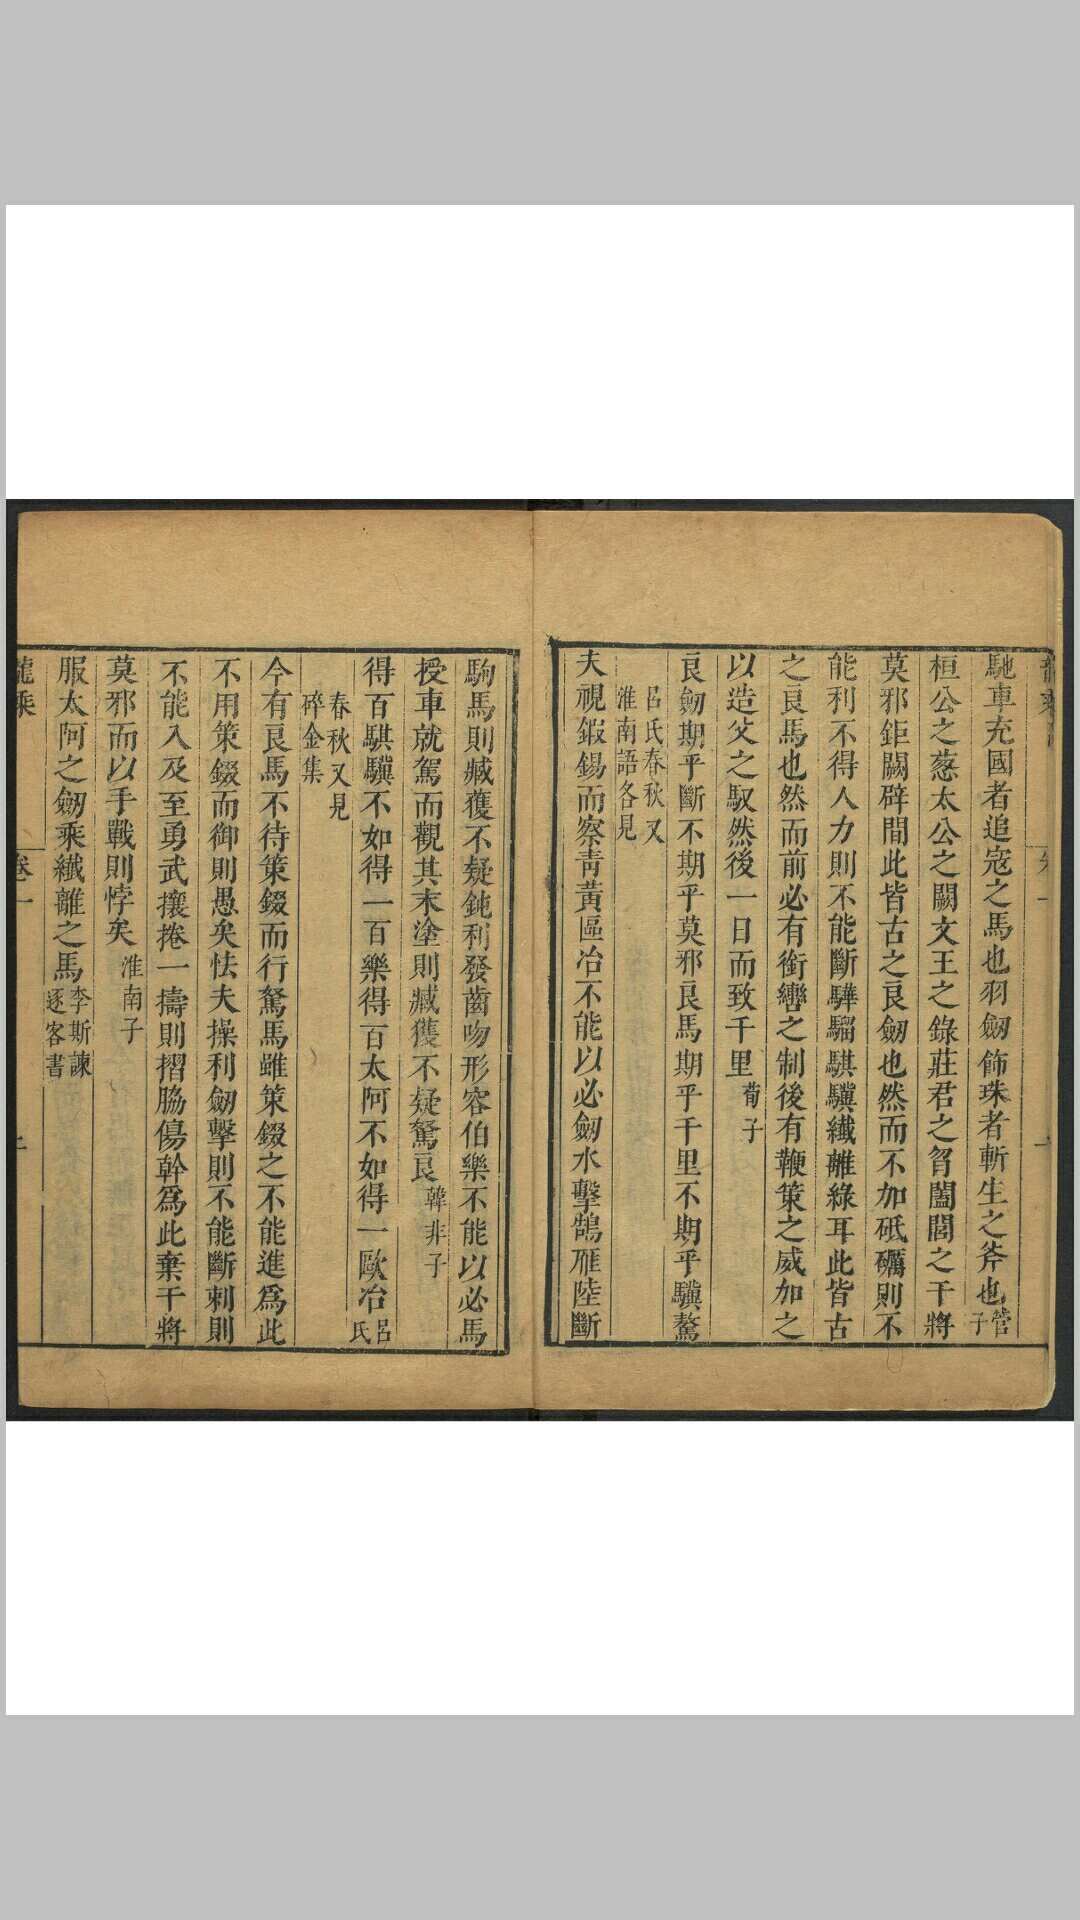 馳車充國者追寇之馬也羽劒飾珠者斬生之斧也管子
桓公之蔥太公之闕文王之錄莊君之曶闔閭之干將
莫邪鉅闕辟閭此皆古之良劒也然而不加砥礪則不
能利不得人力則不能斷驊騮騏驥纖離綠耳此皆古
之良馬也然而前必有銜轡之制後有鞭策之威加之
以造父之馭然後一日而致千里荀子
良劒期乎斷不期乎莫邪良馬期乎千里不期乎驥驁
呂氏春秋又
淮南語各見
夫視鍜錫而察青黃區冶不能以必劒水擊鵠雁陸斷
駒馬則臧獲不疑鈍利發齒吻形容伯樂不能以必馬
授車就駕而觀其末塗則臧獲不疑駑良韓非子
得百騏驥不如得一百樂得百太阿不如得一歐冶呂氏
春秋又見
碎金集
今有良馬不待策錣而行駑馬雖策錣之不能進爲此
不用策錣而御則愚矣怯夫操利劒擊則不能斷刺則
不能入及至勇武攘捲一擣則摺脇傷幹爲此棄干將
莫邪而以手戰則悖矣淮南子
服太阿之劒乘纖離之馬李斯諫逐客書
龍乘
卷一